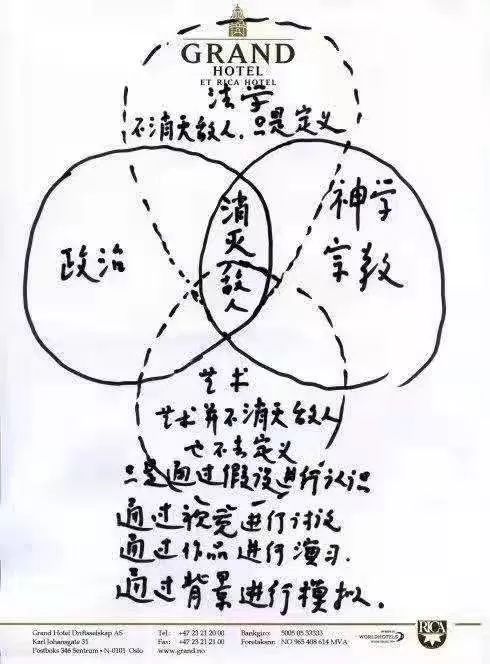 GRAND
HOTEL
ET RICA HOTEL
法学
不消灭敌人，只是定义
政治
消灭敌人
神学
宗教
艺术
艺术并不消灭敌人
也不去定义
只是通过假设进行认识
通过视觉进行讨论
通过作品进行演习．
通过背景进行模拟．
Grand Hotel Driftsselskap AS
Karl Johansgate 31
Postboks 346 Sentrum • N-0101 Oslo
Tel.: +47 23 21 20 00
Fax: +47 23 21 21 00
www.grand.no
Bankgiro: 5005 05 53533
Foretaksnr. NO 965 408 614 MVA
WORLDHOTELS
RICA